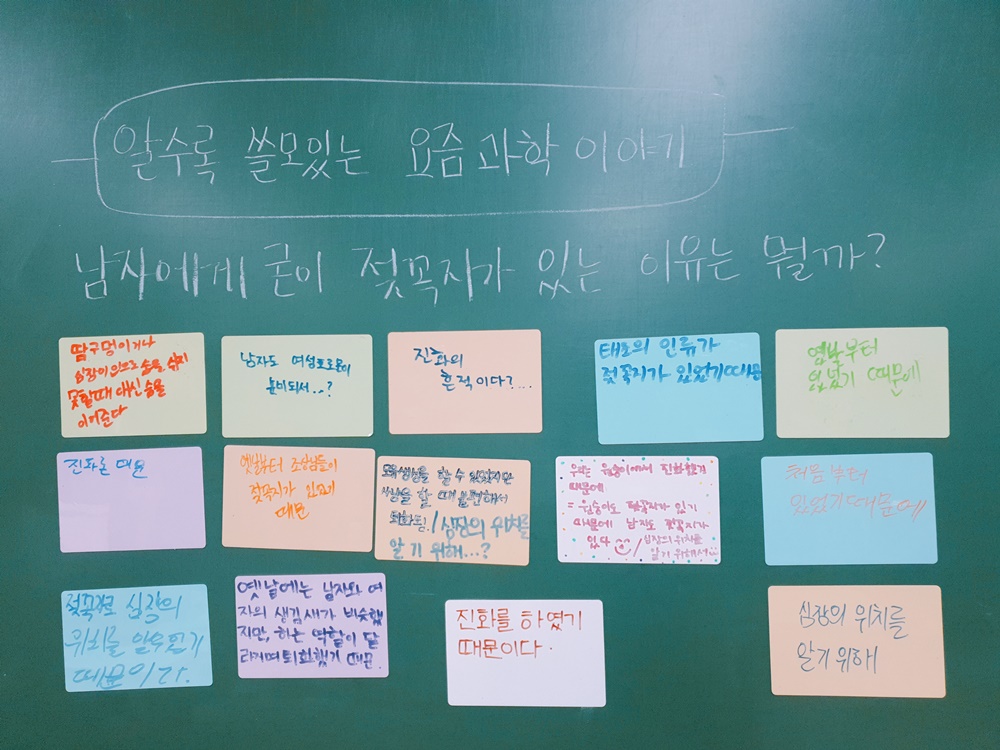 알수록 쓸모있는 요즘 과학 이야기
남자에게 굳이 젖꼭지가 있는 이유는 뭘까?
땀구멍이거나
심장이 있으므로 숨을 쉬지
못할때 대신 숨을
이어준다
남자도 여성호르몬이
분비되서..?
진화의
흔적이다?....
태초의 인류가
젖꼭지가 있었기때문
옛날부터
있었기 때문에
진화론 때문
옛날부터 조상님들이
젖꼭지가 있었기
때문
할 수 있었지만
할 때 불편해서
퇴화됨! / 심장의 위치를
알기 위해...?
우리는 원숭이에서 진화했기
때문에
= 원숭이도 젖꼭지가 있기
때문에 남자도 젖꼭지가
있다 / 심장의 위치를
알기 위해서
처음부터
있었기때문에
젖꼭지로 심장의
위치를 알수있기
때문이다.
옛날에는 남자와 여
자의 생김새가 비슷했
지만, 하는 역할이 달
라지며 퇴화했기 때문
진화를 하였기
때문이다.
심장의 위치를
알기 위해